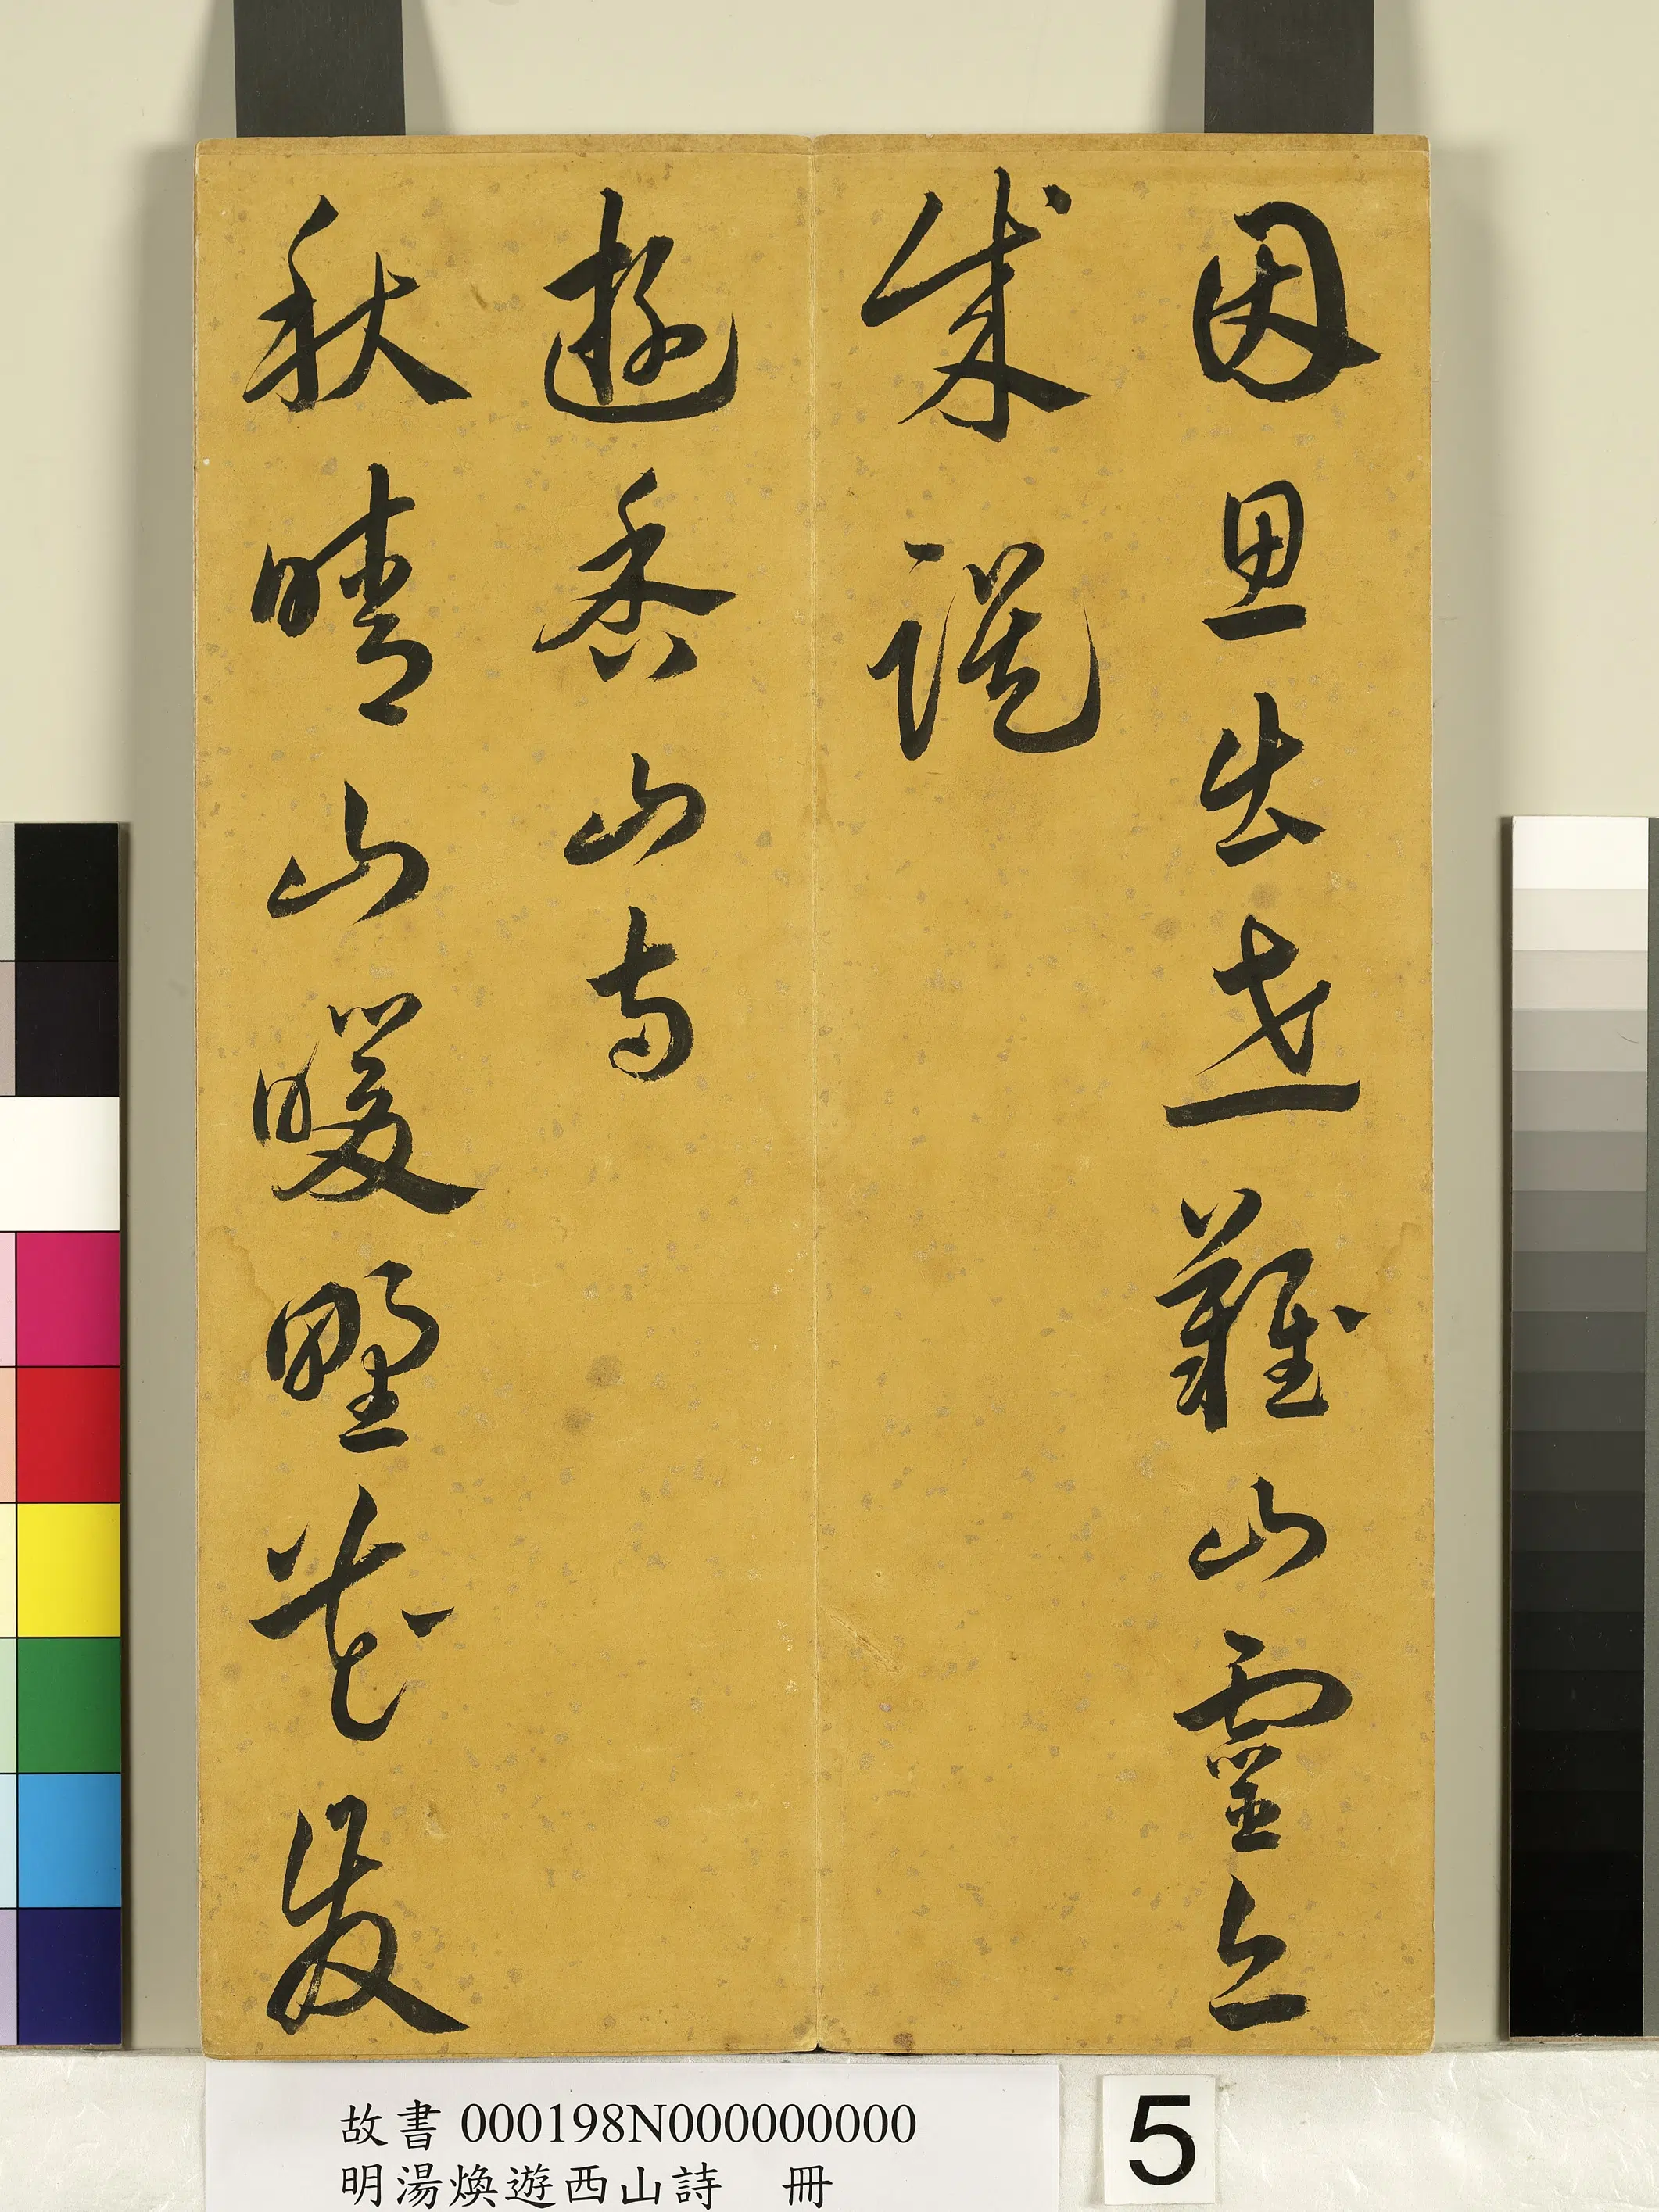 因思出世難山靈
遊香山寺
秋晴山暖野花發
故書 000198N000000000
明湯煥遊西山詩 冊
5